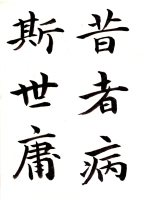 昔者病
斯世庸